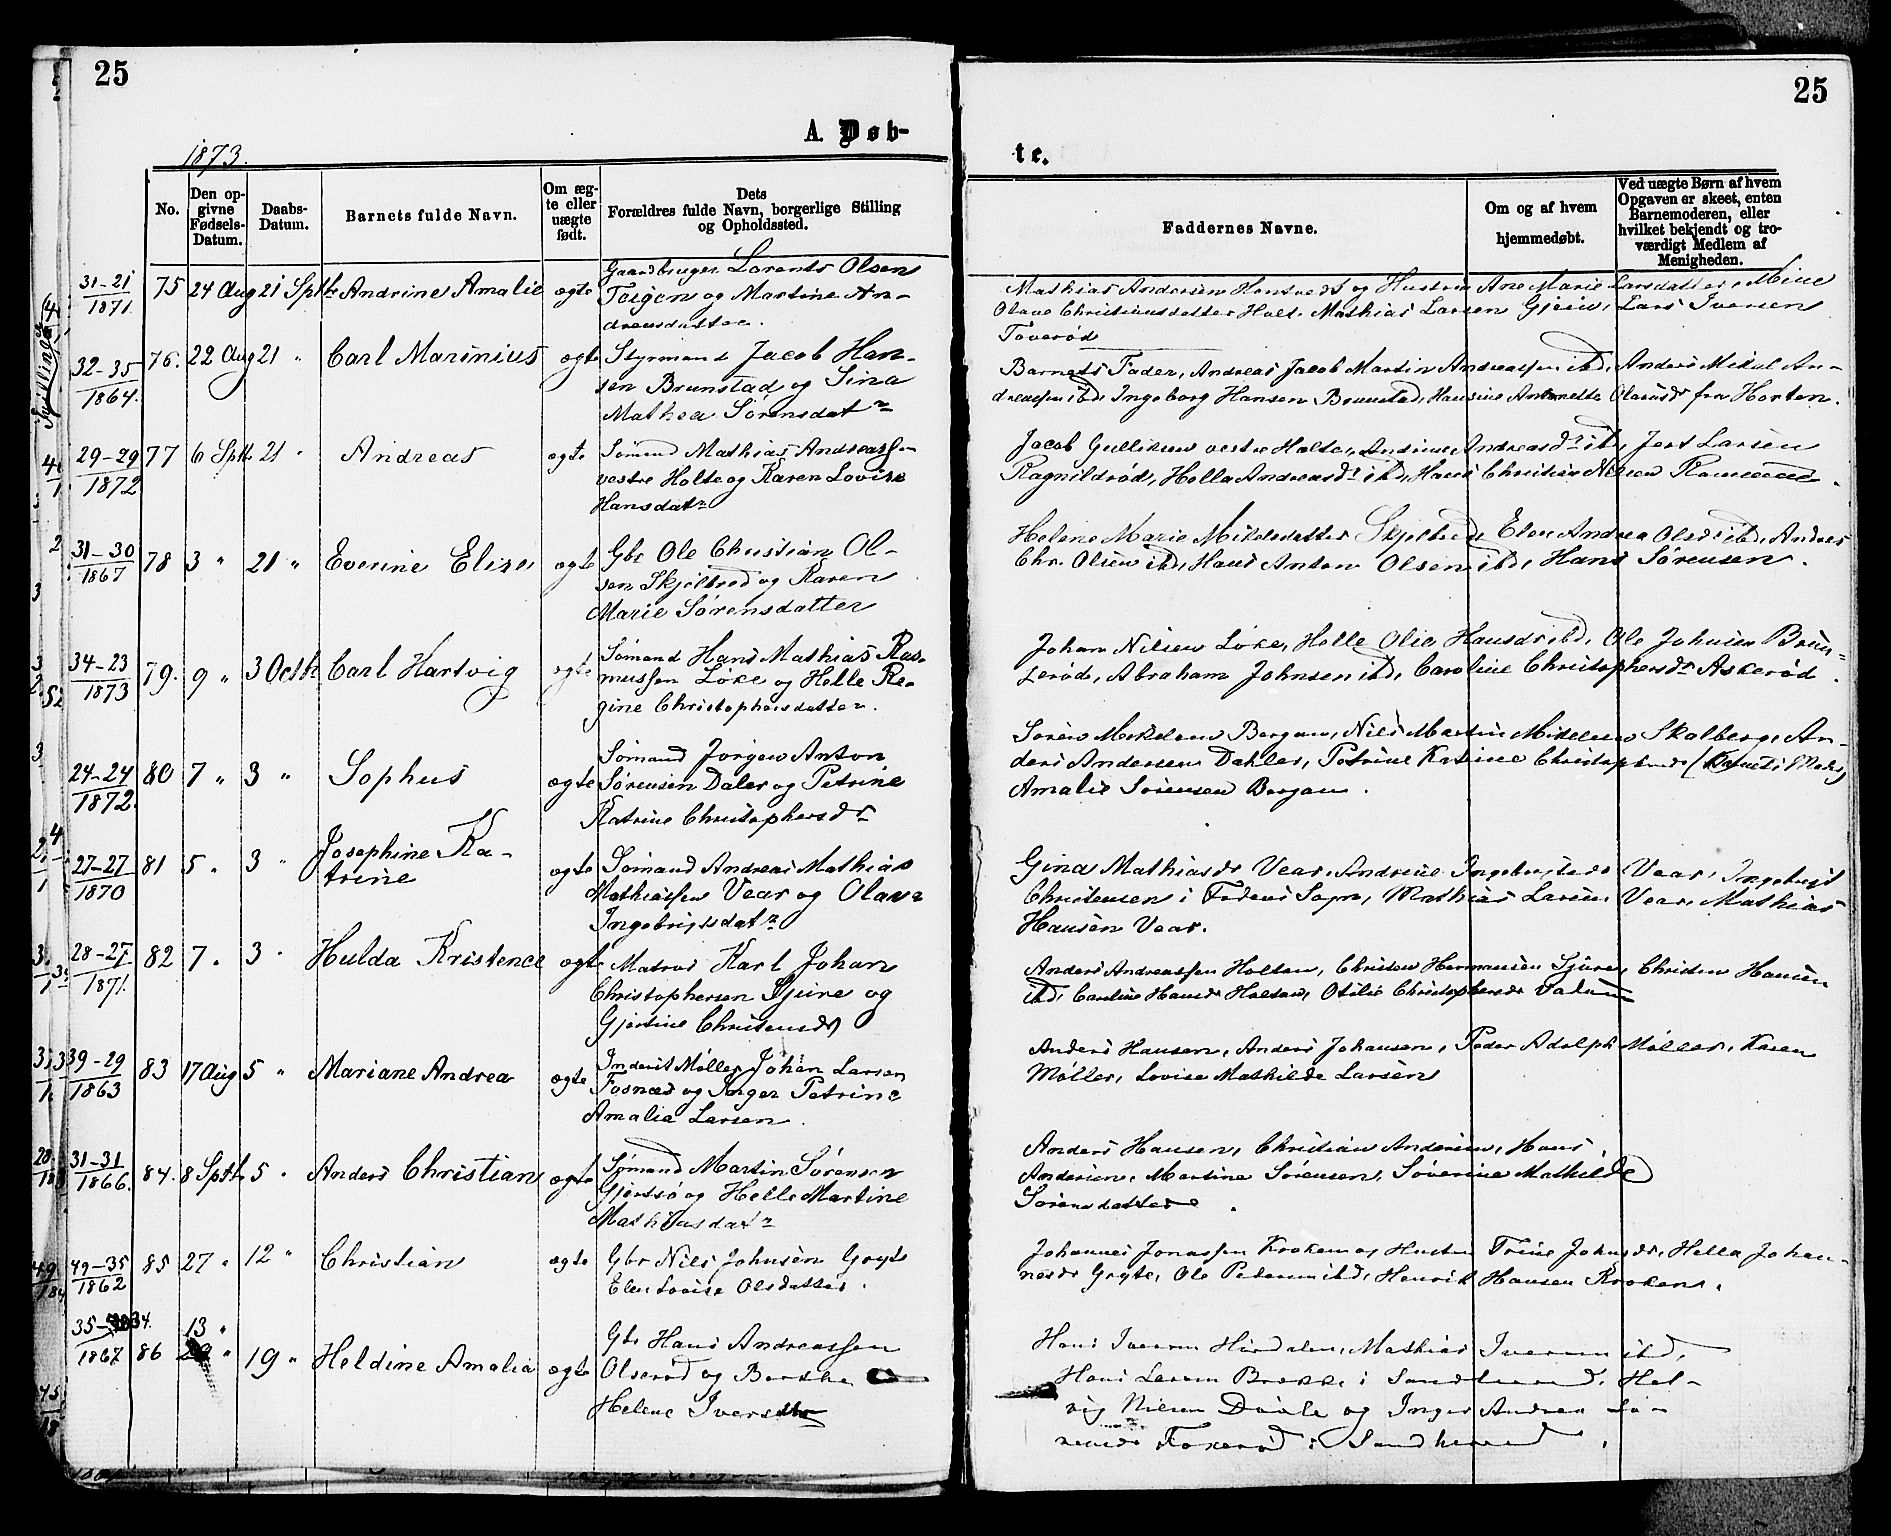 25
25
A. Døb-
te.
1873.
No.
Den op-
givne
Fødsels-
Datum.
Daabs-
Datum.
Barnets fulde Navn.
Om æg-
te eller
uægte
født.
Dets
Forældres fulde Navn, borgerlige Stilling
og Opholdssted.
Faddernes Navne.
Om og af hvem
hjemmedøbt.
Ved uægte Børn af hvem
Opgaven er skeet, enten
Barnemoderen, eller
hvilket bekjendt og tro-
værdigt Medlem af
Menigheden.
31-21
1871.
75 24 Aug 21 Septbr Andrine Amalie ægte
Gaardbruger Lorents Olsen
og Martine An-
dreasdatter.
Mathias Andersen og Hustru Ane Marie Larsdatter,
Olave Christiansdatter Holt, Mathias Larsen Gjein, Lars Iversen
Toverød
32-35
1864.
76. 22 Aug 21 " Carl Marinius ægte
Styrmand Jacob Han-
sen Brunstad og Sina
Mathea Sørensdatr
Barnets Fader, Andreas Jacob Martin Andreassen ibd, Anders Mikal An-
dreassen ibd, Ingeborg Hansen Brunstad, Hansine Olavesdr fra Horten.
29-29
1872
77 6 Sptb 21 " Andreas ægte
Sømand Mathias Andreassen
vestre Holt og Karen Lovise
Hansdatr
Jacob Gulliksen vestre Holt, Andrine Andreasdr ibd, Larsen
Ragnildrød, Hella Andreasdr ibd, Hans Christian Nilsen
31-30
1867
78 3 " 21 " Everine Elise ægte
Gbr Ole Christian Ol-
sen Skjeltred og Karen
Marie Sørensdatter
Helene Marie Mikelsdatter Elen Andrea Olsdr ibd, Anders
Chr. Olsen ibd, Hans Anton Olsen ibd, Hans Sørensen.
34-23
1873
79. 9 " 3 Octbr Carl Hartvig ægte
Sømand Hans Mathias Ras-
mussen Løke og Helle Re-
gine Christophersdatter.
Johan Nilsen Løke, Helle Olia Hansdr ibd, Ole Johnsen
Abraham Johnsen ibd, Caroline Christophersdr Askerød.
24-24
1872.
80 7 " 3 " Sophus ægte
Sømand Jørgen Anton
Sørensen Daler og Petrine
Katrine Christophersdr
Søren Mikelsen Bergan, Nils Martin Mikelsen Skalberg, An-
ders Andersen Dahler, Petrine Katrine Christophersdr (Barnets Moder)
Amalie Sørensen Bergan.
27-27
1870
81 5 " 3 " Josephine Ka-
trine ægte
Sømand Andreas Mathias
Mathiassen Vear og Olava
Ingebrigtsdatr
Gina Mathiasdr Vear, Andrine Vear, Ingebrigt
Christensen i Mathias Larsen Vear, Mathias
Hansen Vear.
28-27
1871.
82 7 " 3 " Hulda Kristence ægte
Matros Karl Johan
Christophersen Gjure og
Gjertine Christensdr
Anders Andreassen Holtan, Christen Hermansen Gjure, Christen Hansen
ibd, Caroline Hansdr Holtan, Otilie Christophersdr
39-29
1863
83 17 Aug 5 " Mariane Andrea ægte
Inderst Møller Johan Larsen
Fosnæs og Inger Petrine
Amalia Larsen.
Anders Hansen, Anders Johansen, Peder Adolph Møller, Karen
Møller, Lovise Mathilde Larsen
31-31
1866.
84. 8 Sptb 5 " Anders Christian ægte
Sømand Martin Sørensen
Gjertsø og Helle Martine
Mathiasdatr
Anders Hansen, Christian Andersen, Hans
Andersen, Martine Sørensen, Severine Mathilde
Sørensdatter.
49-35
1862
85 27 " 12 " Christian ægte
Gbr Nils Johnsen Gryte
Elen Lovise Olsdatter.
Johannes Jonassen Kroken og Hustru Trine Johnsdr, Hella Johan-
nesdr Gryte, Ole Pedersen ibd, Henrik Hansen Kroken.
35-34.
1867
86 13 " 19 " Heldine Amalia ægte
Gbr Hans Andreassen
Olserød og Berthe
Helene Iversdtr
Hans Iversen Hirdalen, Mathias Iversen ibd,
Hans Larsen Brekke i Sandeherred, Hel-
vig Nilsen og Inger Andrea
Fokserød i Sandeherred.